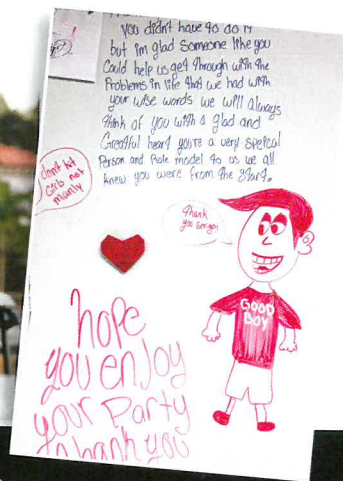 you didn't have to do it
but im glad Someone like you
Could help us get through with the
Problems in life that we had with
your wise words we will always
think of you with a glad and
Greatful heart you're a very speical
Person and Role model to us we all
knew you were from the Start.
dont hit
Girls not
manly
Thank
you
GOOD
BOY
hope
you enjoy
your Party
thank you